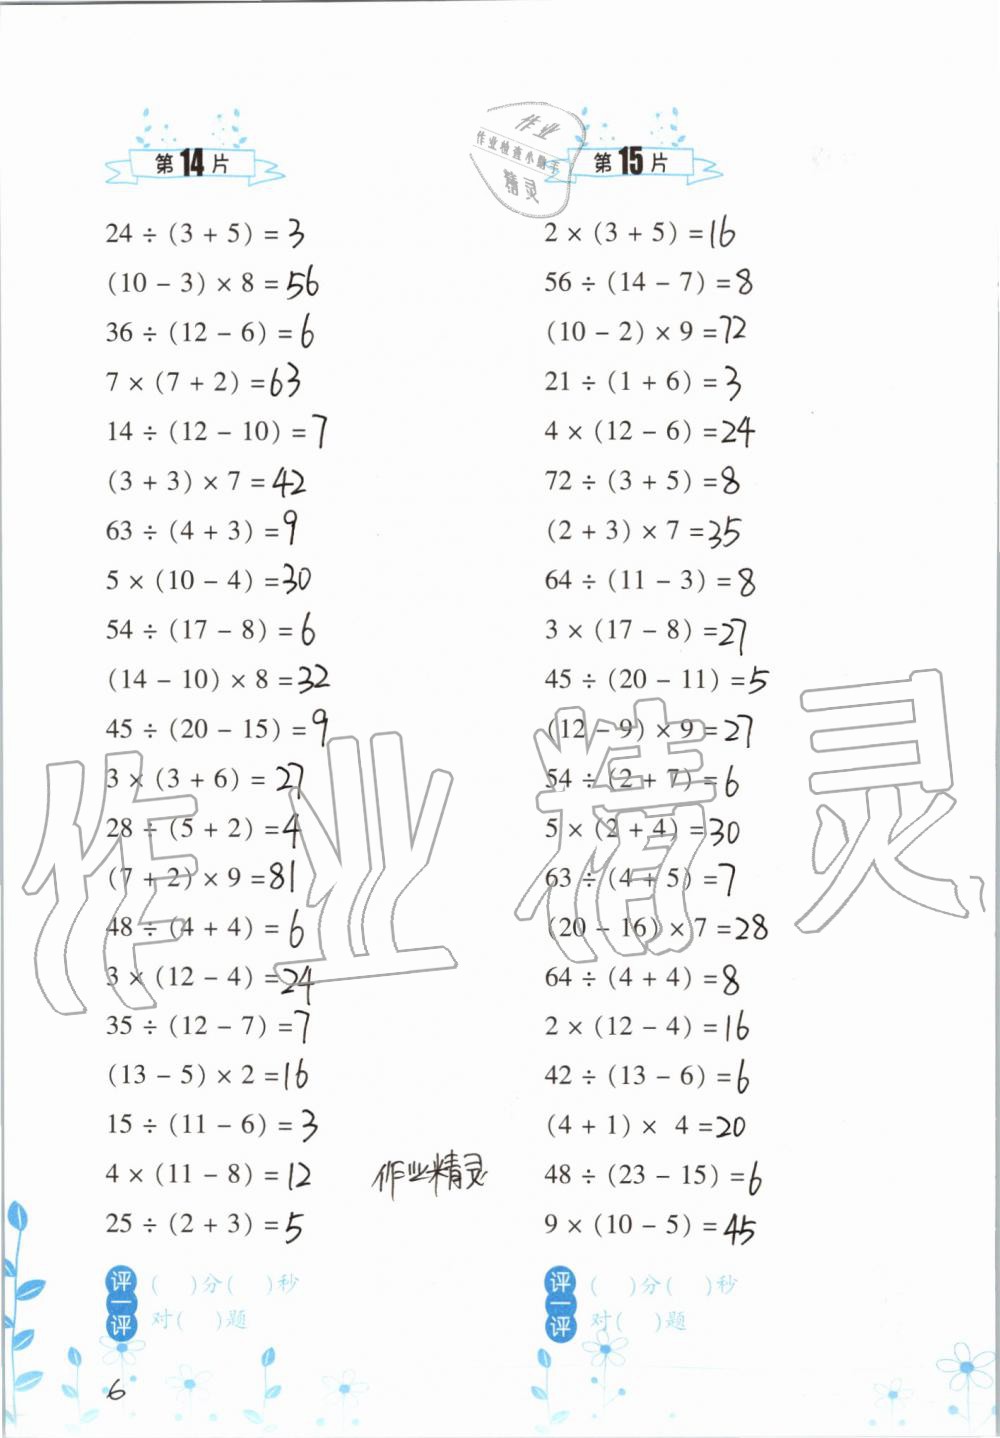 第14片
24 ÷ (3 + 5) = 3
(10 − 3) × 8 = 56
36 ÷ (12 − 6) = 6
7 × (7 + 2) = 63
14 ÷ (12 − 10) = 7
(3 + 3) × 7 = 42
63 ÷ (4 + 3) = 9
5 × (10 − 4) = 30
54 ÷ (17 − 8) = 6
(14 − 10) × 8 = 32
45 ÷ (20 − 15) = 9
3 × (3 + 6) = 27
28 ÷ (5 + 2) = 4
(7 + 2) × 9 = 81
48 ÷ (4 + 4) = 6
3 × (12 − 4) = 24
35 ÷ (12 − 7) = 7
(13 − 5) × 2 = 16
15 ÷ (11 − 6) = 3
4 × (11 − 8) = 12
25 ÷ (2 + 3) = 5
评一评
( )分( )秒
对( )题
作业
作业检查小助手
精灵
第15片
2 × (3 + 5) = 16
56 ÷ (14 − 7) = 8
(10 − 2) × 9 = 72
21 ÷ (1 + 6) = 3
4 × (12 − 6) = 24
72 ÷ (3 + 5) = 8
(2 + 3) × 7 = 35
64 ÷ (11 − 3) = 8
3 × (17 − 8) = 27
45 ÷ (20 − 11) = 5
(12 − 9) × 9 = 27
54 ÷ (2 + 7) = 6
5 × (2 + 4) = 30
63 ÷ (4 + 5) = 7
(20 − 16) × 7 = 28
64 ÷ (4 + 4) = 8
2 × (12 − 4) = 16
42 ÷ (13 − 6) = 6
(4 + 1) × 4 = 20
48 ÷ (23 − 15) = 6
9 × (10 − 5) = 45
评一评
( )分( )秒
对( )题
作业精灵
作业精灵
6